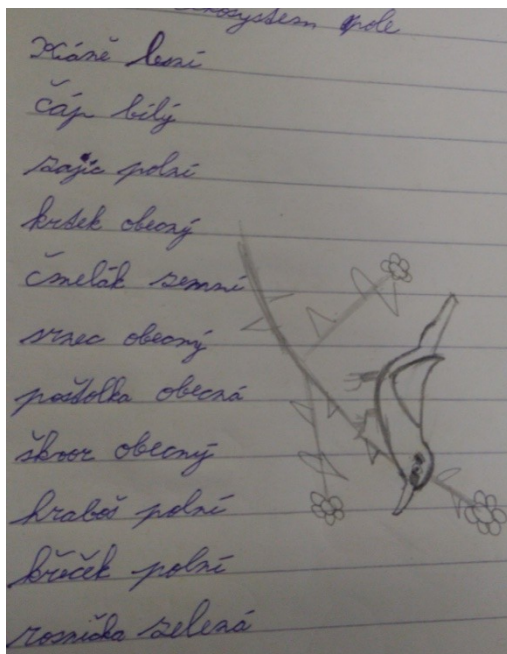 ekosystem pole
Káně lesní
čáp bílý
zajíc polní
krtek obecný
čmelák zemní
srnec obecný
poštolka obecná
škvor obecný
hraboš polní
křeček polní
rosnička zelená